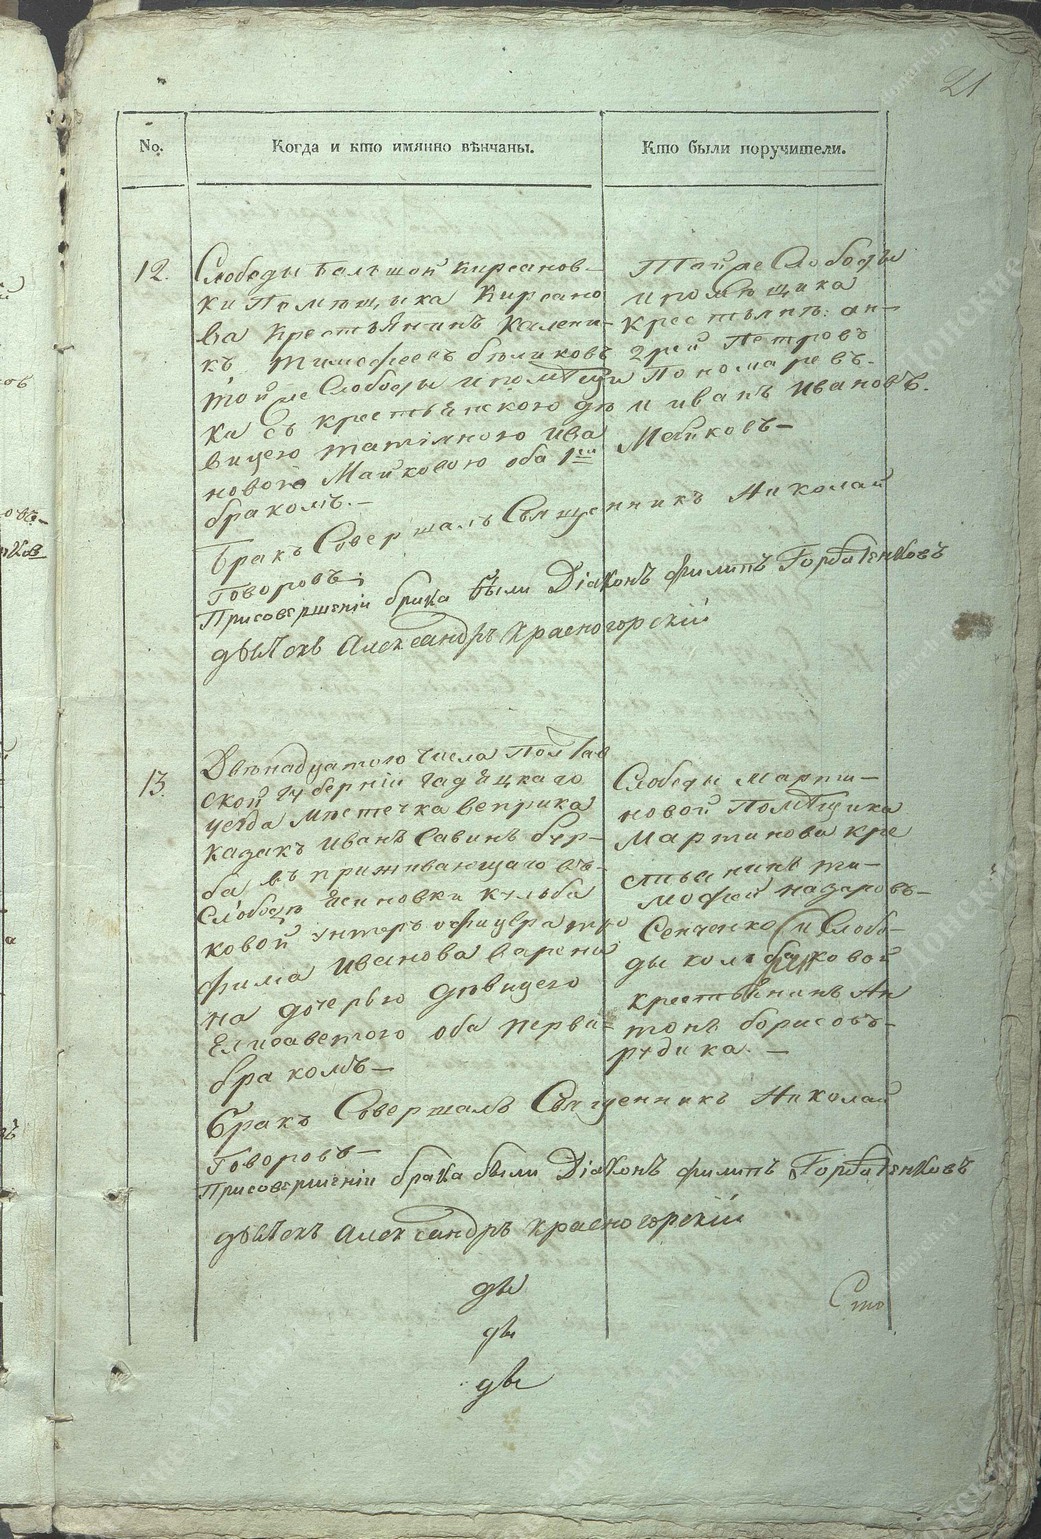 21
No. Когда и кто имянно вѣнчаны. Кто были поручители.
12. Слободы Большой Кирсанов-
ки Помѣщика Кирсано
ва Крестьянинъ Калени-
къ Тимофеевъ бѣликовъ
той же Слободы и помѣщи
ка съ крестьянскою дѣ
вицею татіяною ива
новою Майковою оба 1мъ
бракомъ.-
Той же Слободы
и помѣщика
Крестьянѣ: ан-
дрей Петровъ
Пономаревъ-
и иванъ Ивановъ-
Майковъ-
Бракъ Совершалъ Священникъ Николай
Говоровъ
При совершеніи брака были Діаконъ филипъ Горбатенковъ
дьячекъ Александръ Красногорскій
13. Двѣнадцатого числа Полтав
ской губерніи гадяцкаго
уезда мѣстечка веприка
казакъ иванъ Савинъ бур-
ба въ приживающаго въ-
Слободѣ Есиновки кульба
ковой унтеръ офицера тро
фима Иванова варени
на дочерью дѣвицею
Елисаветою оба перви-
бракомъ-
Слободы марти-
новой Помѣщика
Мартинова кре
стьянинъ ти-
мофей назаровъ-
Сенченко и Слобо-
ды колбаковой
крестьянинъ Ан
тонъ борисовъ-
рудика.-
Бракъ Совершалъ Священникъ Николай
Говоровъ-
При совершеніи брака были Діаконъ филипъ Горбатенковъ
дьячекъ Александръ Красногорскій
Сто